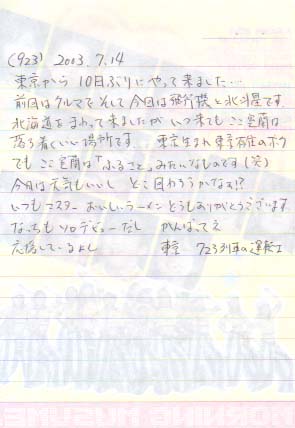 (923) 2003.7.14
東京から 10日ぶりにやって来ました…
前回はクルマで そして今回は飛行機と北斗星です
北海道をまわって来ましたが いつ来ても ここ室蘭は
落ち着いい場所です 東京生まれ 東京在住のボク
でも ここ室蘭は「ふるさと」みたいなものです(笑)
今日は天気もいいし どこ回わろうかなぁ!?
いつもマスター おいしいラーメン どうもありがとうございます
なっちもソロデビューだし がんばってえ
応援しているよし 東京 723列車の運転士
MORNING MUSUME